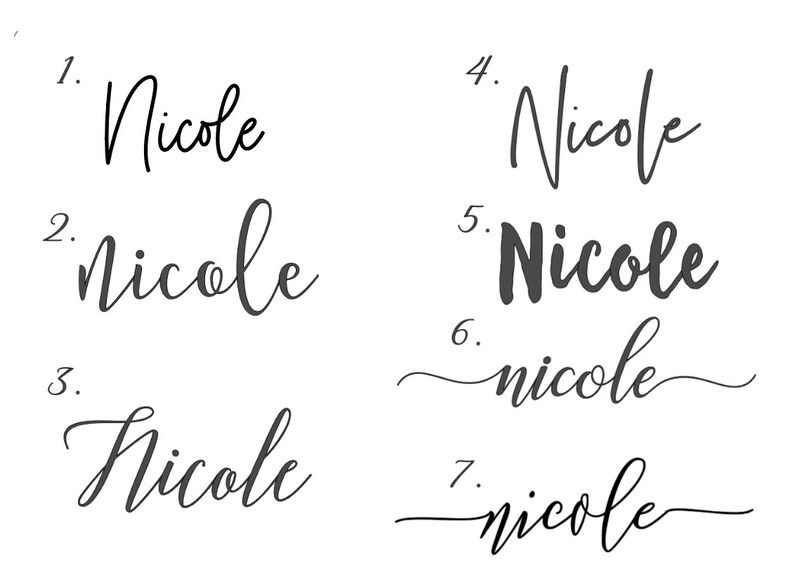 1. Nicole
2. nicole
3. Nicole
4. Nicole
5. Nicole
6. nicole
7. nicole